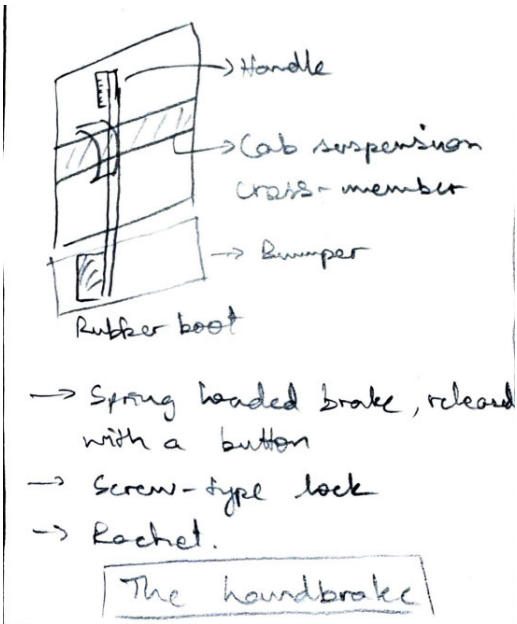 → Handle
→ Cab suspension
cross-member
→ Bumper
Rubber boot
→ Spring loaded brake, released
with a button
→ Screw-type lock
→ Rachet.
The handbrake